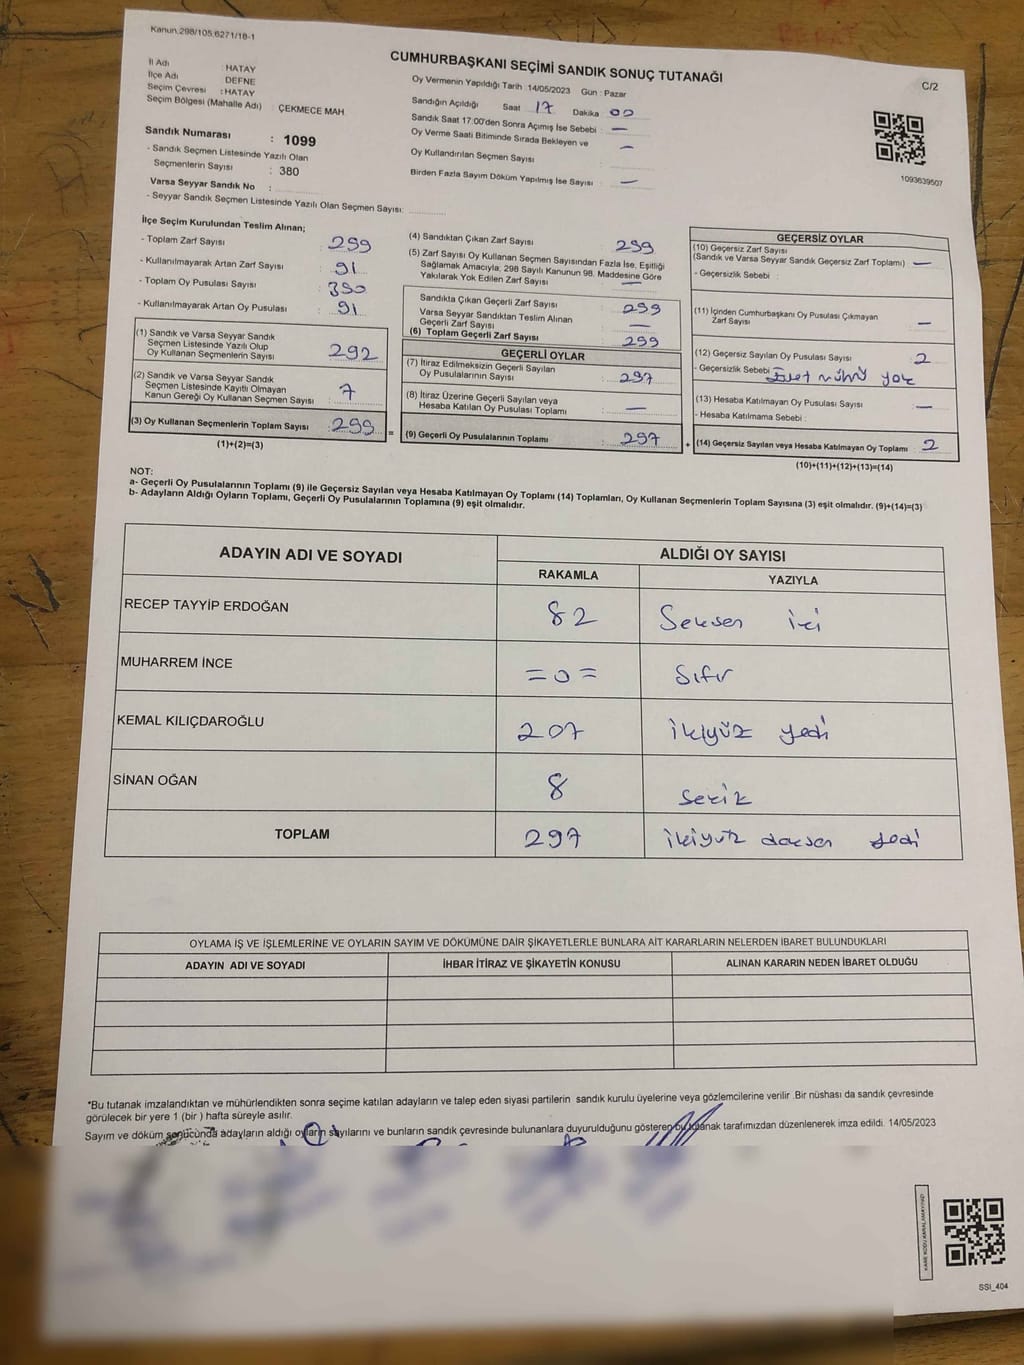 Kanun.298/105,6271/18-1
CUMHURBAŞKANI SEÇİMİ SANDIK SONUÇ TUTANAĞI
C/2
İl Adı : HATAY
İlçe Adı : DEFNE
Seçim Çevresi : HATAY
Seçim Bölgesi (Mahalle Adı) : ÇEKMECE MAH
Sandık Numarası : 1099
- Sandık Seçmen Listesinde Yazılı Olan
Seçmenlerin Sayısı : 380
Varsa Seyyar Sandık No :
- Seyyar Sandık Seçmen Listesinde Yazılı Olan Seçmen Sayısı:
Oy Vermenin Yapıldığı Tarih : 14/05/2023 Gün : Pazar
Sandığın Açıldığı Saat 17 Dakika 00
Sandık Saat 17:00'den Sonra Açımış İse Sebebi : —
Oy Verme Saati Bitiminde Sırada Bekleyen ve —
Oy Kullandırılan Seçmen Sayısı
Birden Fazla Sayım Döküm Yapılmış İse Sayısı : —
1093639507
İlçe Seçim Kurulundan Teslim Alınan;
- Toplam Zarf Sayısı : 299
- Kullanılmayarak Artan Zarf Sayısı : 91
- Toplam Oy Pusulası Sayısı : 390
- Kullanılmayarak Artan Oy Pusulası : 91
(1) Sandık ve Varsa Seyyar Sandık
Seçmen Listesinde Yazılı Olup
Oy Kullanan Seçmenlerin Sayısı : 292
(2) Sandık ve Varsa Seyyar Sandık
Seçmen Listesinde Kayıtlı Olmayan
Kanun Gereği Oy Kullanan Seçmen Sayısı : 7
(3) Oy Kullanan Seçmenlerin Toplam Sayısı : 299
(1)+(2)=(3)
(4) Sandıktan Çıkan Zarf Sayısı : 299
(5) Zarf Sayısı Oy Kullanan Seçmen Sayısından Fazla İse, Eşitliği
Sağlamak Amacıyla; 298 Sayılı Kanunun 98. Maddesine Göre
Yakılarak Yok Edilen Zarf Sayısı : —
Sandıkta Çıkan Geçerli Zarf Sayısı : 299
Varsa Seyyar Sandıktan Teslim Alınan
Geçerli Zarf Sayısı : —
(6) Toplam Geçerli Zarf Sayısı : 299
GEÇERLİ OYLAR
(7) İtiraz Edilmeksizin Geçerli Sayılan
Oy Pusulalarının Sayısı : 297
(8) İtiraz Üzerine Geçerli Sayılan veya
Hesaba Katılan Oy Pusulası Toplamı : —
(9) Geçerli Oy Pusulalarının Toplamı : 297
GEÇERSİZ OYLAR
(10) Geçersiz Zarf Sayısı
(Sandık ve Varsa Seyyar Sandık Geçersiz Zarf Toplamı) : —
- Geçersizlik Sebebi :
(11) İçinden Cumhurbaşkanı Oy Pusulası Çıkmayan
Zarf Sayısı : —
(12) Geçersiz Sayılan Oy Pusulası Sayısı : 2
- Geçersizlik Sebebi : Evet mühü yok
(13) Hesaba Katılmayan Oy Pusulası Sayısı : —
- Hesaba Katılmama Sebebi :
+ (14) Geçersiz Sayılan veya Hesaba Katılmayan Oy Toplamı : 2
(10)+(11)+(12)+(13)=(14)
NOT:
a- Geçerli Oy Pusulalarının Toplamı (9) ile Geçersiz Sayılan veya Hesaba Katılmayan Oy Toplamı (14) Toplamları, Oy Kullanan Seçmenlerin Toplam Sayısına (3) eşit olmalıdır. (9)+(14)=(3)
b- Adayların Aldığı Oyların Toplamı, Geçerli Oy Pusulalarının Toplamına (9) eşit olmalıdır.
ADAYIN ADI VE SOYADI ALDIĞI OY SAYISI
RAKAMLA YAZIYLA
RECEP TAYYİP ERDOĞAN 82 Seksen iki
MUHARREM İNCE =0= Sıfır
KEMAL KILIÇDAROĞLU 207 ikiyüz yedi
SİNAN OĞAN 8 Sekiz
TOPLAM 297 ikiyüz doksan yedi
OYLAMA İŞ VE İŞLEMLERİNE VE OYLARIN SAYIM VE DÖKÜMÜNE DAİR ŞİKAYETLERLE BUNLARA AİT KARARLARIN NELERDEN İBARET BULUNDUKLARI
ADAYIN ADI VE SOYADI İHBAR İTİRAZ VE ŞİKAYETİN KONUSU ALINAN KARARIN NEDEN İBARET OLDUĞU
*Bu tutanak imzalandıktan ve mühürlendikten sonra seçime katılan adayların ve talep eden siyasi partilerin sandık kurulu üyelerine veya gözlemcilerine verilir .Bir nüshası da sandık çevresinde
görülecek bir yere 1 (bir ) hafta süreyle asılır.
Sayım ve döküm sonucunda adayların aldığı oyların sayılarını ve bunların sandık çevresinde bulunanlara duyurulduğunu gösteren bu tutanak tarafımızdan düzenlenerek imza edildi. 14/05/2023
SSI_404